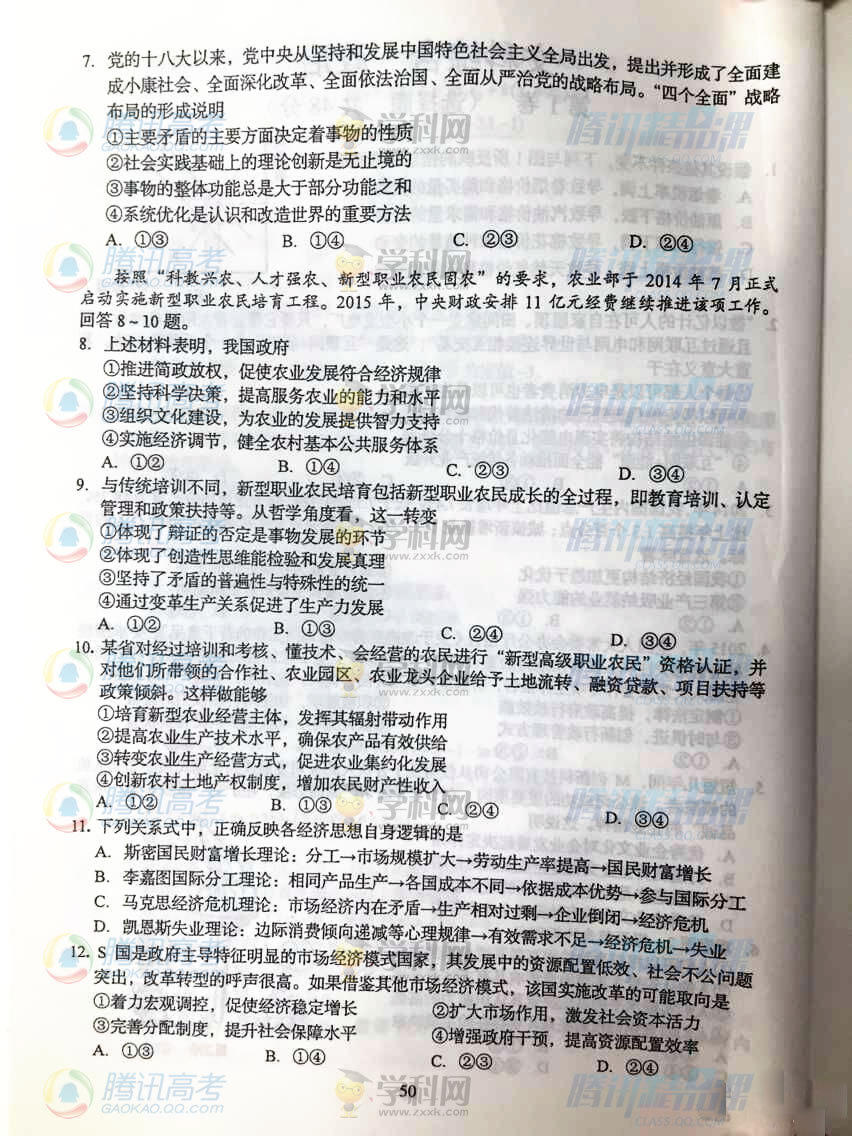 7. 党的十八大以来，党中央从坚持和发展中国特色社会主义全局出发，提出并形成了全面建
成小康社会、全面深化改革、全面依法治国、全面从严治党的战略布局。“四个全面”战略
布局的形成说明
①主要矛盾的主要方面决定着事物的性质
②社会实践基础上的理论创新是无止境的
③事物的整体功能总是大于部分功能之和
④系统优化是认识和改造世界的重要方法
A. ①③ B. ①④ C. ②③ D. ②④
按照“科教兴农、人才强农、新型职业农民固农”的要求，农业部于 2014 年 7 月正式
启动实施新型职业农民培育工程。2015 年，中央财政安排 11 亿元经费继续推进该项工作。
回答 8～10 题。
8. 上述材料表明，我国政府
①推进简政放权，促使农业发展符合经济规律
②坚持科学决策，提高服务农业的能力和水平
③组织文化建设，为农业的发展提供智力支持
④实施经济调节，健全农村基本公共服务体系
A. ①② B. ①④ C. ②③ D. ③④
9. 与传统培训不同，新型职业农民培育包括新型职业农民成长的全过程，即教育培训、认定
管理和政策扶持等。从哲学角度看，这一转变
①体现了辩证的否定是事物发展的环节
②体现了创造性思维能检验和发展真理
③坚持了矛盾的普遍性与特殊性的统一
④通过变革生产关系促进了生产力发展
A. ①② B. ①③ C. ②④ D. ③④
10. 某省对经过培训和考核、懂技术、会经营的农民进行“新型高级职业农民”资格认证，并
对他们所带领的合作社、农业园区、农业龙头企业给予土地流转、融资贷款、项目扶持等
政策倾斜。这样做能够
①培育新型农业经营主体，发挥其辐射带动作用
②提高农业生产技术水平，确保农产品有效供给
③转变农业生产经营方式，促进农业集约化发展
④创新农村土地产权制度，增加农民财产性收入
A. ①② B. ①③ C. ②④ D. ③④
11. 下列关系式中，正确反映各经济思想自身逻辑的是
A. 斯密国民财富增长理论：分工→市场规模扩大→劳动生产率提高→国民财富增长
B. 李嘉图国际分工理论：相同产品生产→各国成本不同→依据成本优势→参与国际分工
C. 马克思经济危机理论：市场经济内在矛盾→生产相对过剩→企业倒闭→经济危机
D. 凯恩斯失业理论：边际消费倾向递减等心理规律→有效需求不足→经济危机→失业
12. S 国是政府主导特征明显的市场经济模式国家，其发展中的资源配置低效、社会不公问题
突出，改革转型的呼声很高。如果借鉴其他市场经济模式，该国实施改革的可能取向是
①着力宏观调控，促使经济稳定增长 ②扩大市场作用，激发社会资本活力
③完善分配制度，提升社会保障水平 ④增强政府干预，提高资源配置效率
A. ①③ B. ①④ C. ②③ D. ②④
50
腾讯高考
GAOKAO.QQ.COM
学科网
www.zxxk.com
腾讯精品课
CLASS.QQ.COM